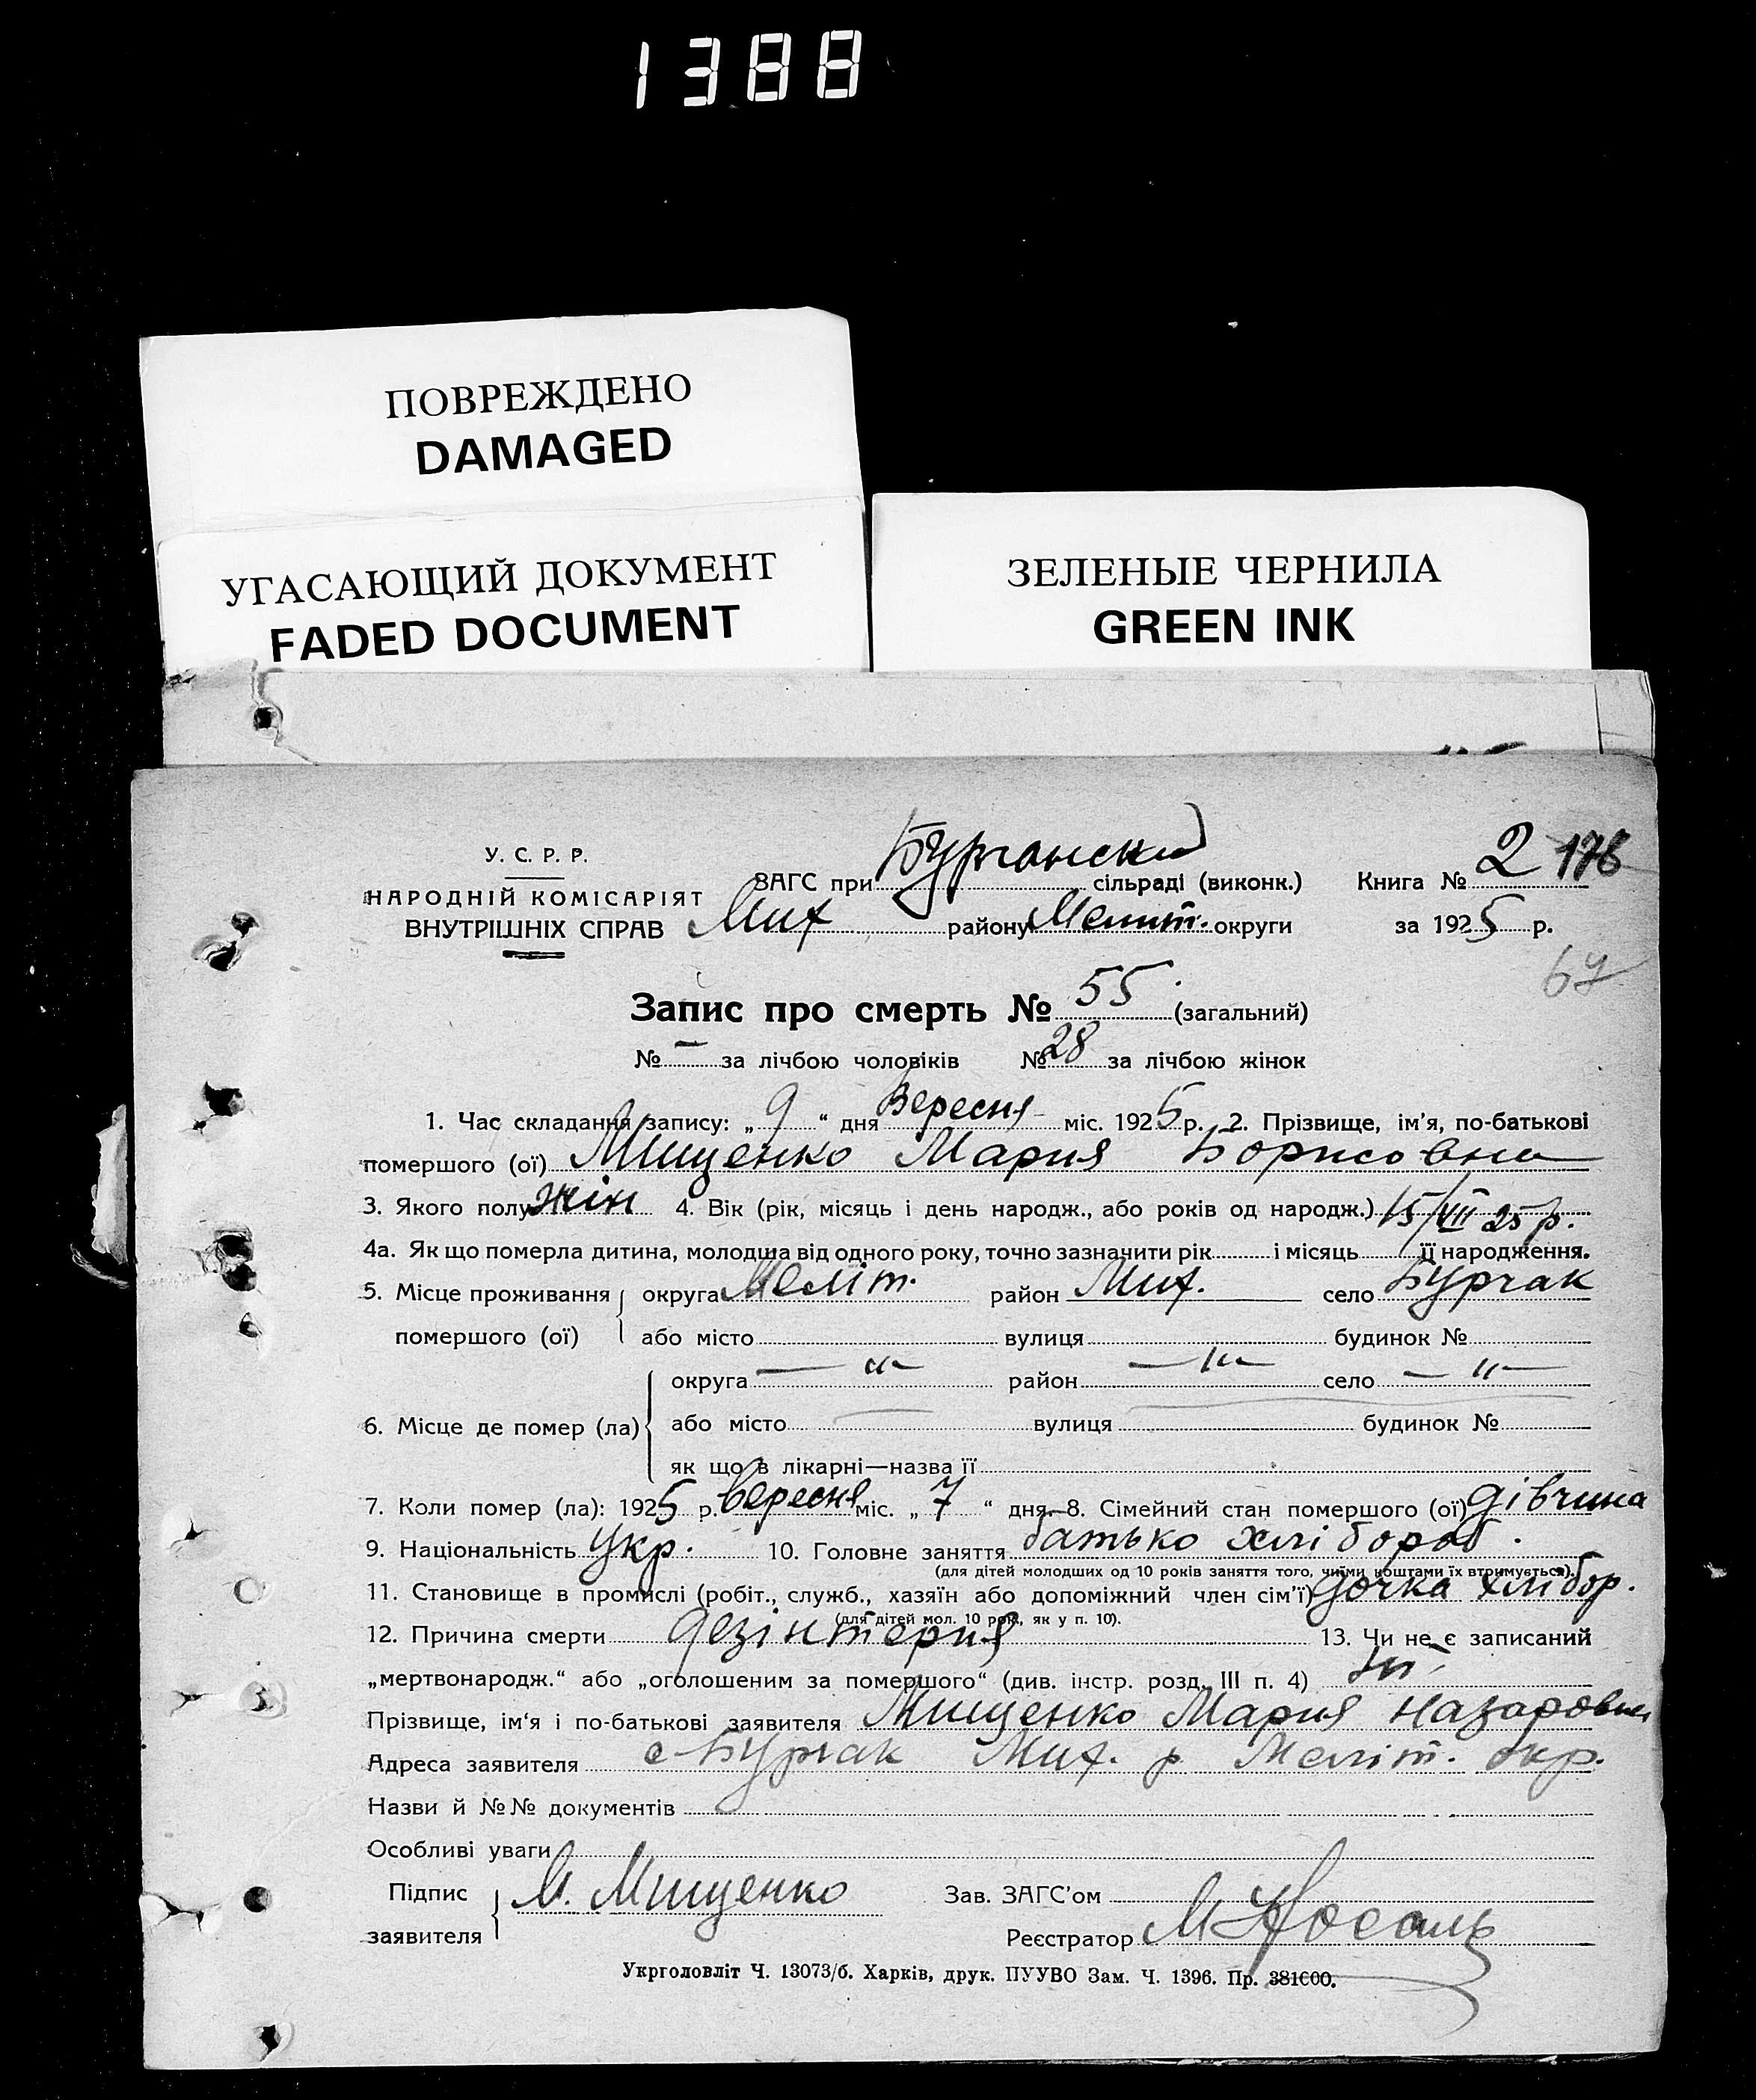 1388
ПОВРЕЖДЕНО
DAMAGED
УГАСАЮЩИЙ ДОКУМЕНТ
FADED DOCUMENT
ЗЕЛЕНЫЕ ЧЕРНИЛА
GREEN INK
У. С. Р. Р.
НАРОДНІЙ КОМІСАРІЯТ
ВНУТРІШНІХ СПРАВ
ЗАГС при сільраді (виконк.) Книга № 2 176
Мих району Мелит. округи за 1925 р.
Запис про смерть № 55 (загальний)
№ — за лічбою чоловіків № 28 за лічбою жінок
1. Час складання запису: „ 9 “ дня Вересня міс. 1925 р. 2. Прізвище, ім'я, по-батькові
помершого (ої) Мищенко Мария Борисовна
3. Якого полу жін 4. Вік (рік, місяць і день народж., або років од народж.) 15/VII 25 р.
4а. Як що померла дитина, молодша від одного року, точно зазначити рік і місяць її народження.
5. Місце проживання помершого (ої) округа Меліт. район Мих. село Бурчак
або місто вулиця будинок №
6. Місце де помер (ла) округа — „ — район — „ — село — „ —
або місто вулиця будинок №
як що в лікарні—назва її
7. Коли помер (ла): 1925 р. вересня міс. „ 7 “ дня.—8. Сімейний стан помершого (ої) дівчина
9. Національність укр. 10. Головне заняття батько хлібороб.
(для дітей молодших од 10 років заняття того, чиїми коштами їх втримується).
11. Становище в промислі (робіт., служб., хазяїн або допоміжний член сім'ї) дочка хлібор.
(для дітей мол. 10 рок., як у п. 10).
12. Причина смерти дезінтерия 13. Чи не є записаний
„мертвонародж.“ або „оголошеним за помершого“ (див. інстр. розд. III п. 4)
Прізвище, ім'я і по-батькові заявителя Мищенко Мария Назаровна
Адреса заявителя с Бурчак Мих. р Меліт. окр.
Назви й №№ документів
Особливі уваги
Підпис заявителя М. Мищенко Зав. ЗАГС'ом
Реєстратор М Носаль
Укрголовліт Ч. 13073/б. Харків, друк. ПУУВО Зам. Ч. 1396. Пр. 381000.